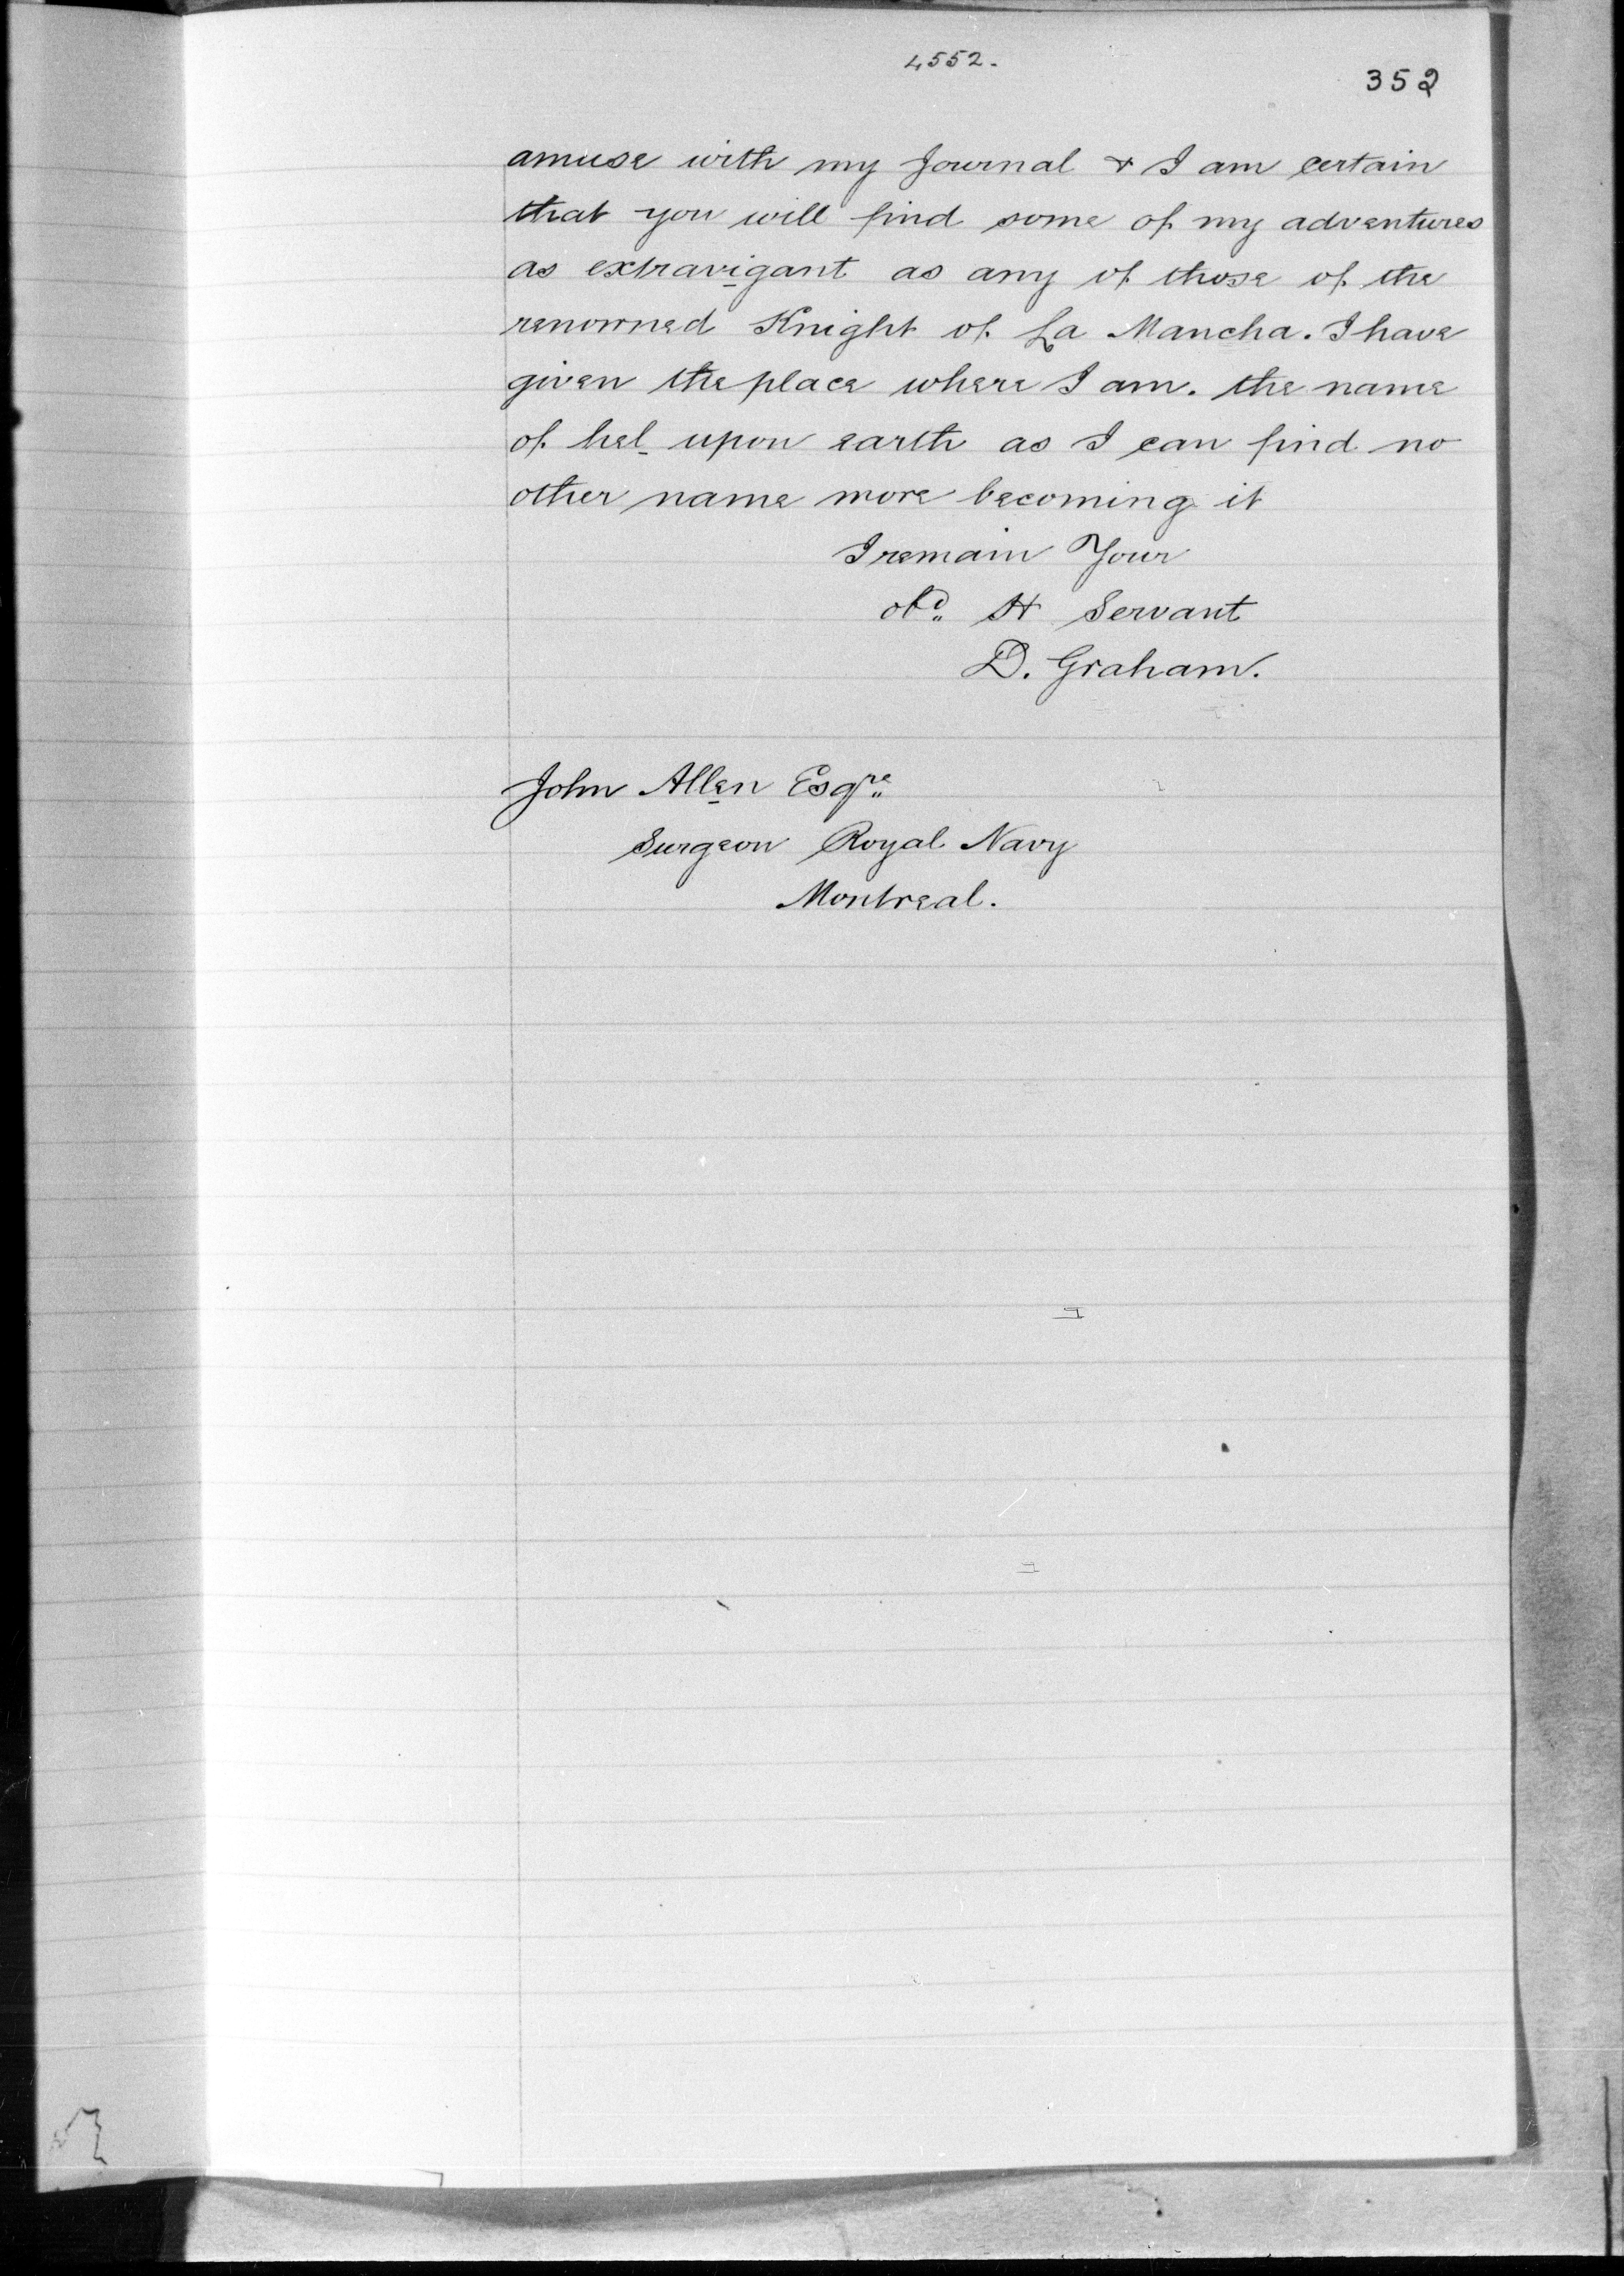 4552.
352
amuse with my Journal & I am certain
that you will find some of my adventures
as extravigant as any of those of the
renowned Knight of La Mancha. I have
given the place where I am. the name
of hel upon earth as I can find no
other name more becoming it
I remain Your
obd. H Servant
D. Graham.
John Allen Esqre
Surgeon Royal Navy
Montreal.